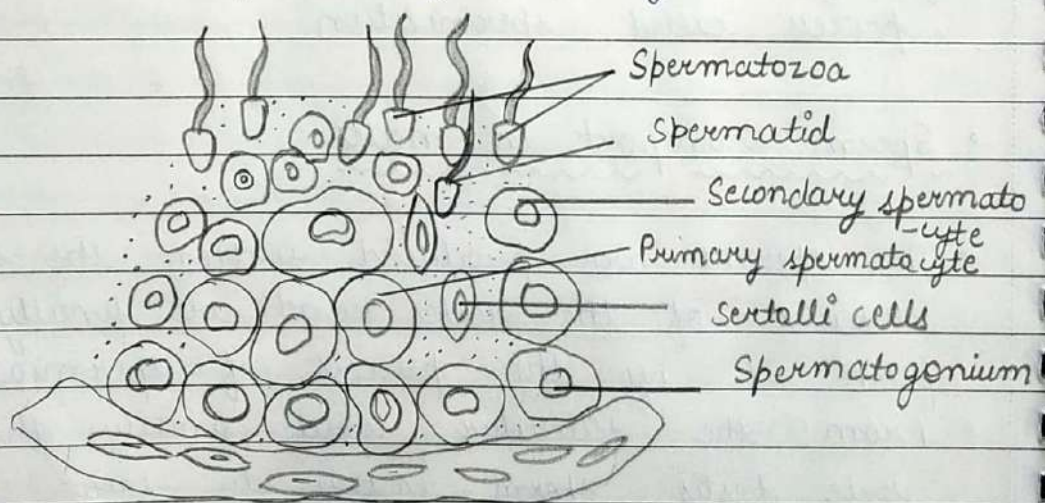 Spermatozoa
Spermatid
Secondary spermato
-cyte
Primary spermatocyte
Sertalli cells
Spermatogonium